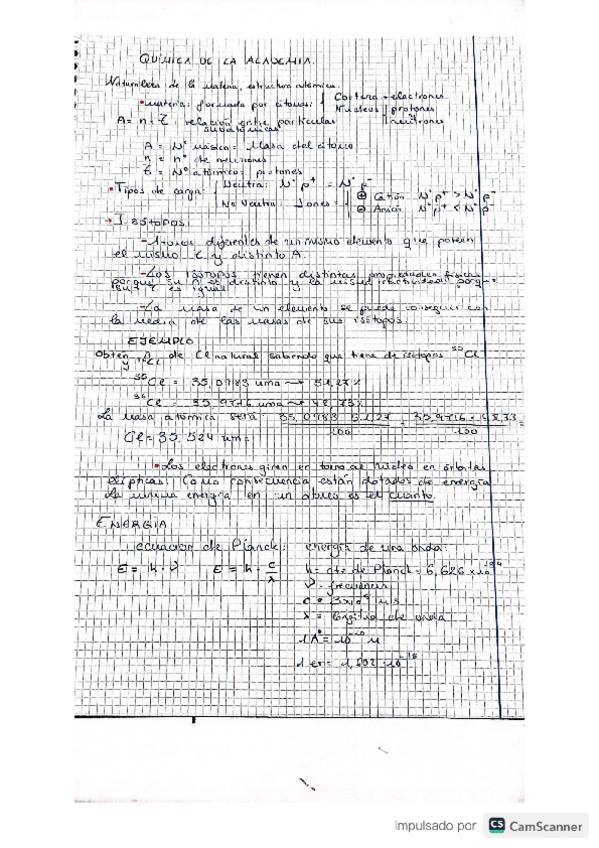 QUÍMICA DE LA ACADEMIA.
Naturaleza de la materia, estructura atómica
• materia: formada por átomos: Corteza → electrones
Núcleos protones
neutrones
A = n + Z relación entre partículas
subatómicas
A = Nº másico = Masa del átomo
n = nº de neutrones
Z = Nº atómico: protones
• Tipos de carga: Neutra: Nº p⁺ = Nº p⁻
No Neutra: Iones ⊕ Catión Nº p⁺ > Nº p⁻
⊖ Anión Nº p⁺ < Nº p⁻
→ ISÓTOPOS:
- Átomos diferentes de un mismo elemento que poseen
el mismo Z y distinto A.
- Los isótopos tienen distintas propiedades físicas
porque su A es distinto y la misma reactividad porque
su Z es igual
- La masa de un elemento se puede conseguir con
la media de las masas de sus isótopos.
EJEMPLO
Obtén de Cl natural sabiendo que tiene de isótopos ³⁵Cl
y
³⁵Cl = 35,0783 uma → 51,27%
³⁶Cl = 35,9716 uma → 48,73%
La masa atómica será: 35,0783 51,27 + 35,9716 · 48,73 =
100 100
Cl = 35.524 uma
• Los electrones giran en torno al núcleo en órbitas
elípticas. Como consecuencia están dotados de energía
La mínima energía en un átomo es el cuanto.
ENERGÍA
ecuación de Planck: energía de una onda:
E = h · ν E = h · c/λ h = cte de Planck = 6,626 x 10⁻³⁴
ν = frecuencia
c = 3x10⁸ m/s
λ = longitud de onda
1 Å = 10⁻¹⁰ m
impulsado por CS CamScanner